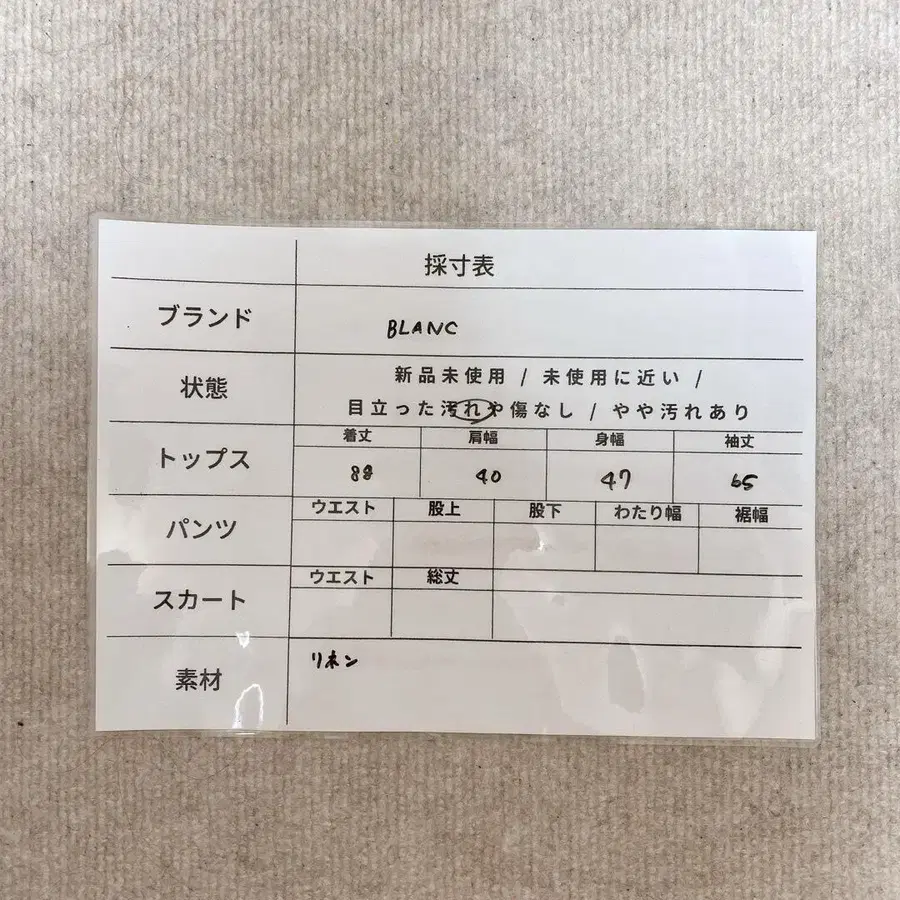 採寸表
ブランド BLANC
状態 新品未使用 / 未使用に近い /
目立った汚れや傷なし / やや汚れあり
トップス 着丈 肩幅 身幅 袖丈
88 40 47 65
パンツ ウエスト 股上 股下 わたり幅 裾幅
スカート ウエスト 総丈
素材 リネン